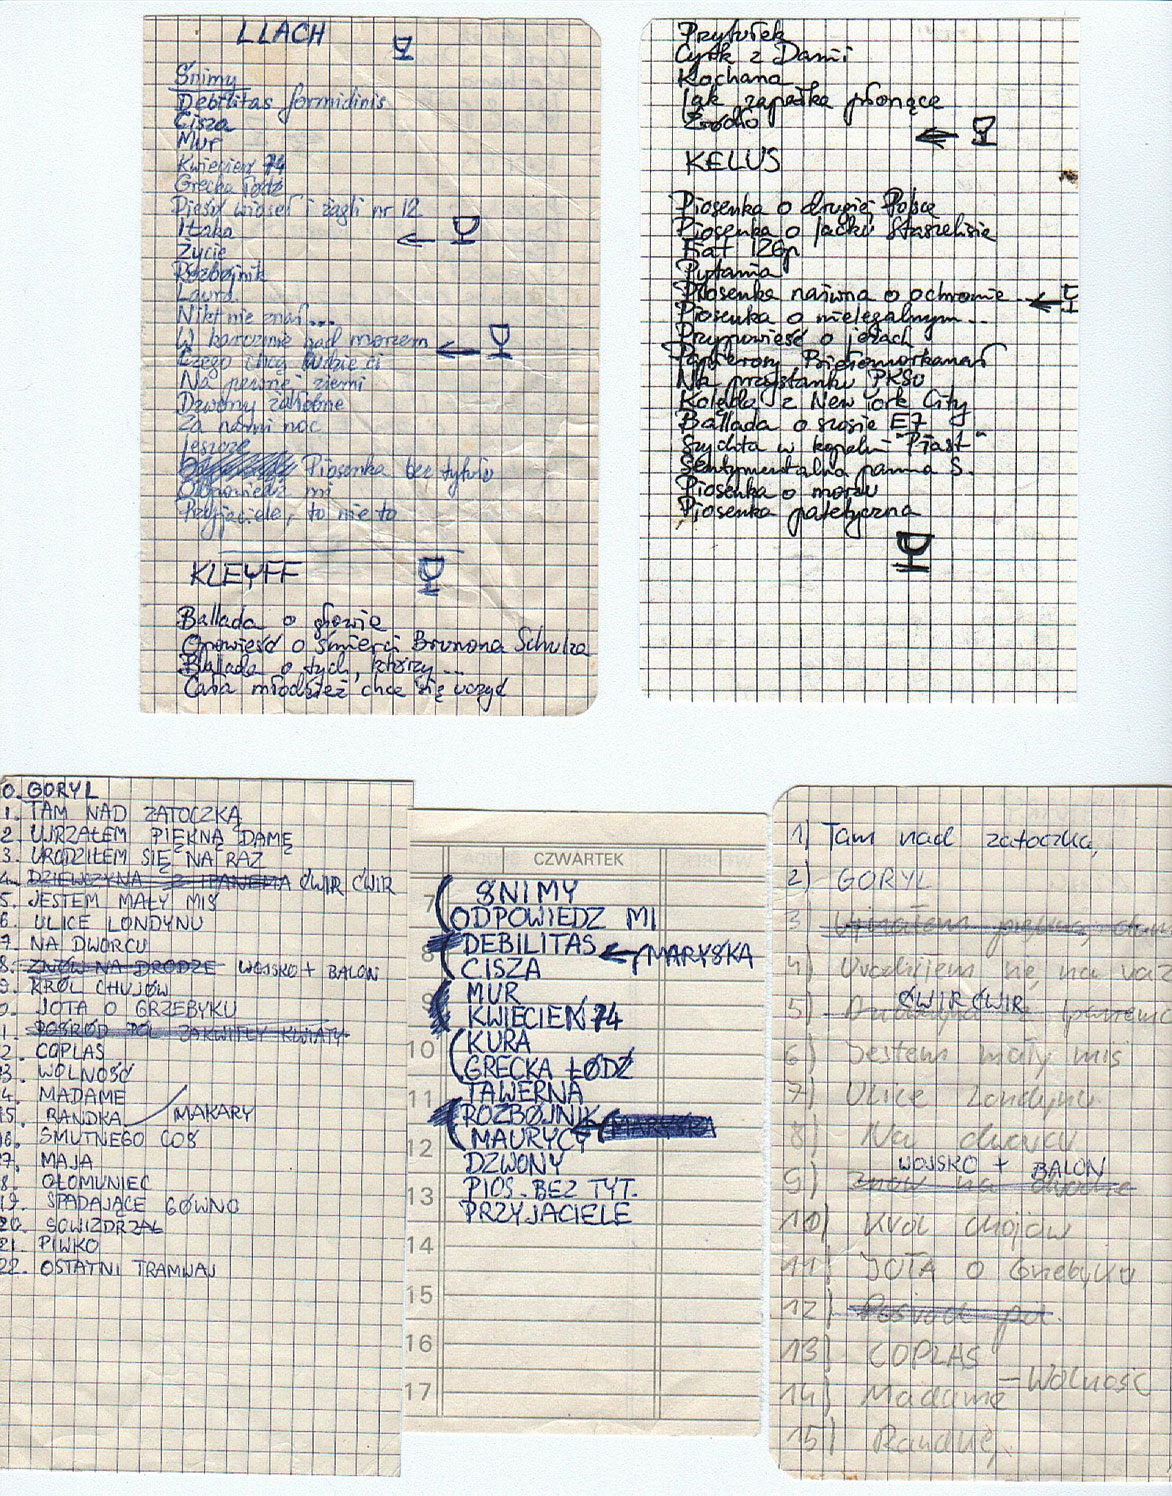 LLACH
Śnimy
Debilitas formidinis
Cisza
Mur
Kwiecień 74
Grecka łódź
Pieśń wioseł i żagli nr 12
Itaka
Życie
Rozbójnik
Laura
Nikt nie znał...
W karczmie nad morzem
Czego chcą ludzie ci
Na pewnej ziemi
Dzwony żałobne
Za nami noc
Jeszcze
Piosenka bez tytułu
Odpowiedz mi
Przyjaciele, to nie to
KLEYFF
Ballada o głowie
Opowieść o śmierci Brunona Schulza
Ballada o tych, którzy...
Cała młodzież chce się uczyć
Przytułek
Cyrk z Danii
Kochana
Jak zapałka płonące
Źródło
KELUS
Piosenka o drugiej Polsce
Piosenka o Jacku Staszelisie
Fiat 126p
Pytania
Piosenka naiwna o ochronie...
Piosenka o nielegalnym...
Przypowieść o jeżach
Papierosy Biełomorkanał
Na przystanku PKSu
Kolęda z New York City
Ballada o szosie E7
Szychta w kopalni "Piast"
Sentymentalna panna S.
Piosenka o morzu
Piosenka patetyczna
0. GORYL
1. TAM NAD ZATOCZKĄ
2. UJRZAŁEM PIĘKNĄ DAMĘ
3. URODZIŁEM SIĘ NA RAZ
4. DZIEWCZYNA Z IPANEMA ĆWIR ĆWIR
5. JESTEM MAŁY MIŚ
6. ULICE LONDYNU
7. NA DWORCU
8. ZNÓW NA DRODZE WOJSKO + BALON
9. KRÓL CHUJÓW
0. JOTA O GRZEBYKU
1. POŚRÓD PÓL ZAKWITŁY KWIATY
2. COPLAS
3. WOLNOŚĆ
4. MADAME
15. RANDKA MAKARY
16. SMUTNEGO COŚ
17. MAJA
8. OŁOMUNIEC
19. SPADAJĄCE GÓWNO
20. SOWIZDRZAŁ
21. PIWKO
22. OSTATNI TRAMWAJ
CZWARTEK
7
8
9
10
11
12
13
14
15
16
17
ŚNIMY
ODPOWIEDZ MI
DEBILITAS MARYŚKA
CISZA
MUR
KWIECIEŃ 74
KURA
GRECKA ŁÓDŹ
TAWERNA
ROZBÓJNIK
MAURYCY MARYŚKA
DZWONY
PIOS. BEZ TYT.
PRZYJACIELE
1) Tam nad zatoczką
2) GORYL
3 Ujrzałem piękną
4) Urodziłem się na raz
5) ĆWIR ĆWIR
6) Jestem mały miś
7) Ulice Londynu
8) Na dworcu
WOJSKO + BALON
9) Znów na drodze
10) Król chujów
11) JOTA O Grzebyku
12) Pośród pól
13) COPLAS
Wolność
14) Madame
15) Randkę